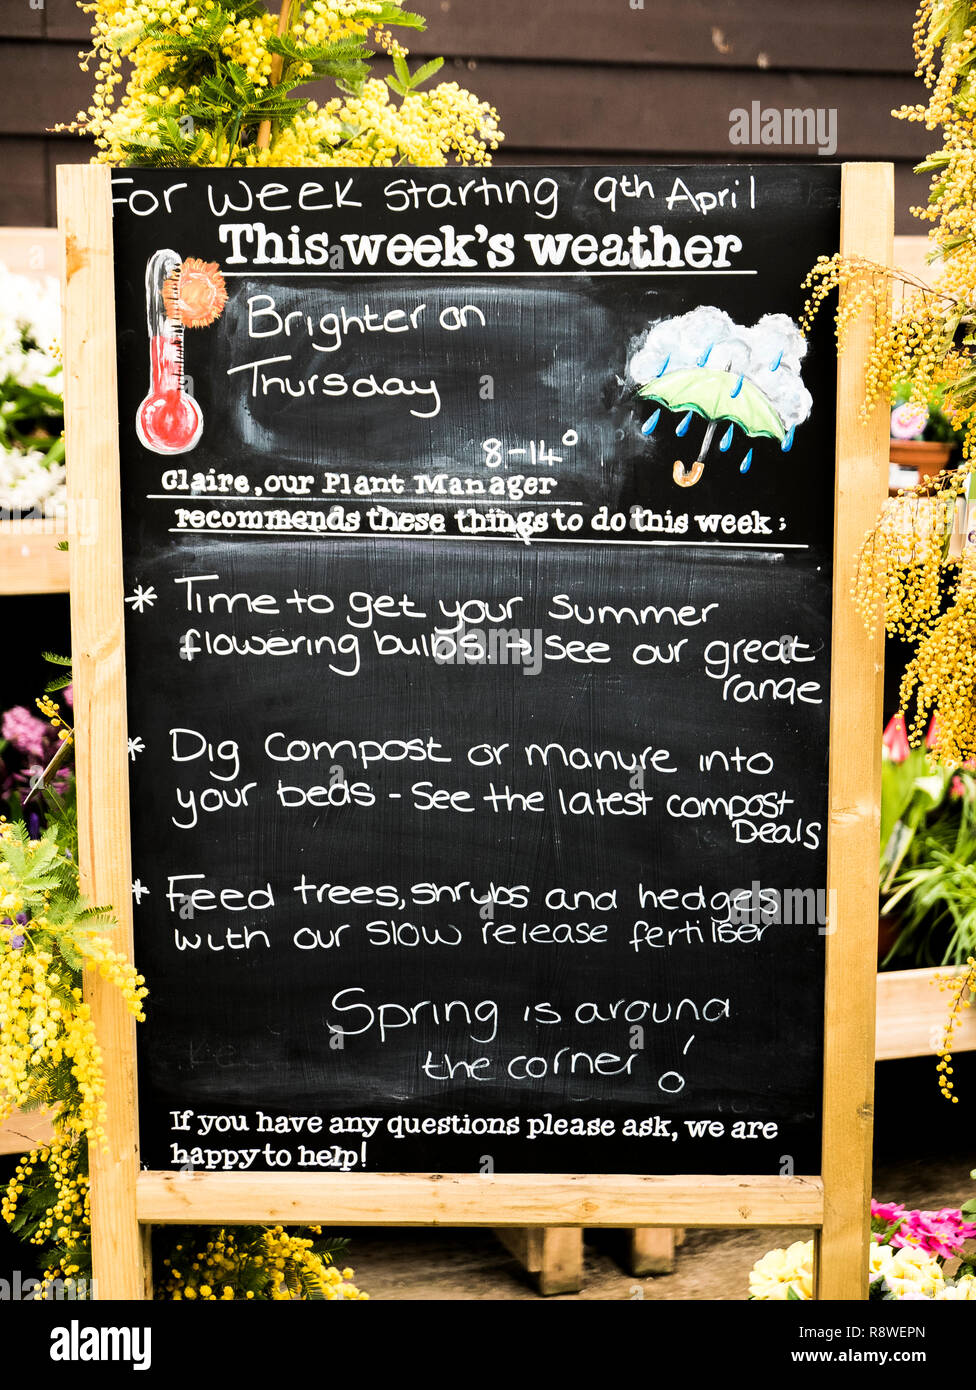 For week starting 9th April
This week's weather
Brighter on
Thursday
8-14°
Claire, our Plant Manager
recommends these things to do this week:
* Time to get your summer
flowering bulbs. → See our great
range
* Dig compost or manure into
your beds - See the latest compost
Deals
* Feed trees, shrubs and hedges
with our slow release fertiliser
Spring is around
the corner!
If you have any questions please ask, we are
happy to help!
alamy
alamy
alamy
Image ID: R8WEPN
www.alamy.com